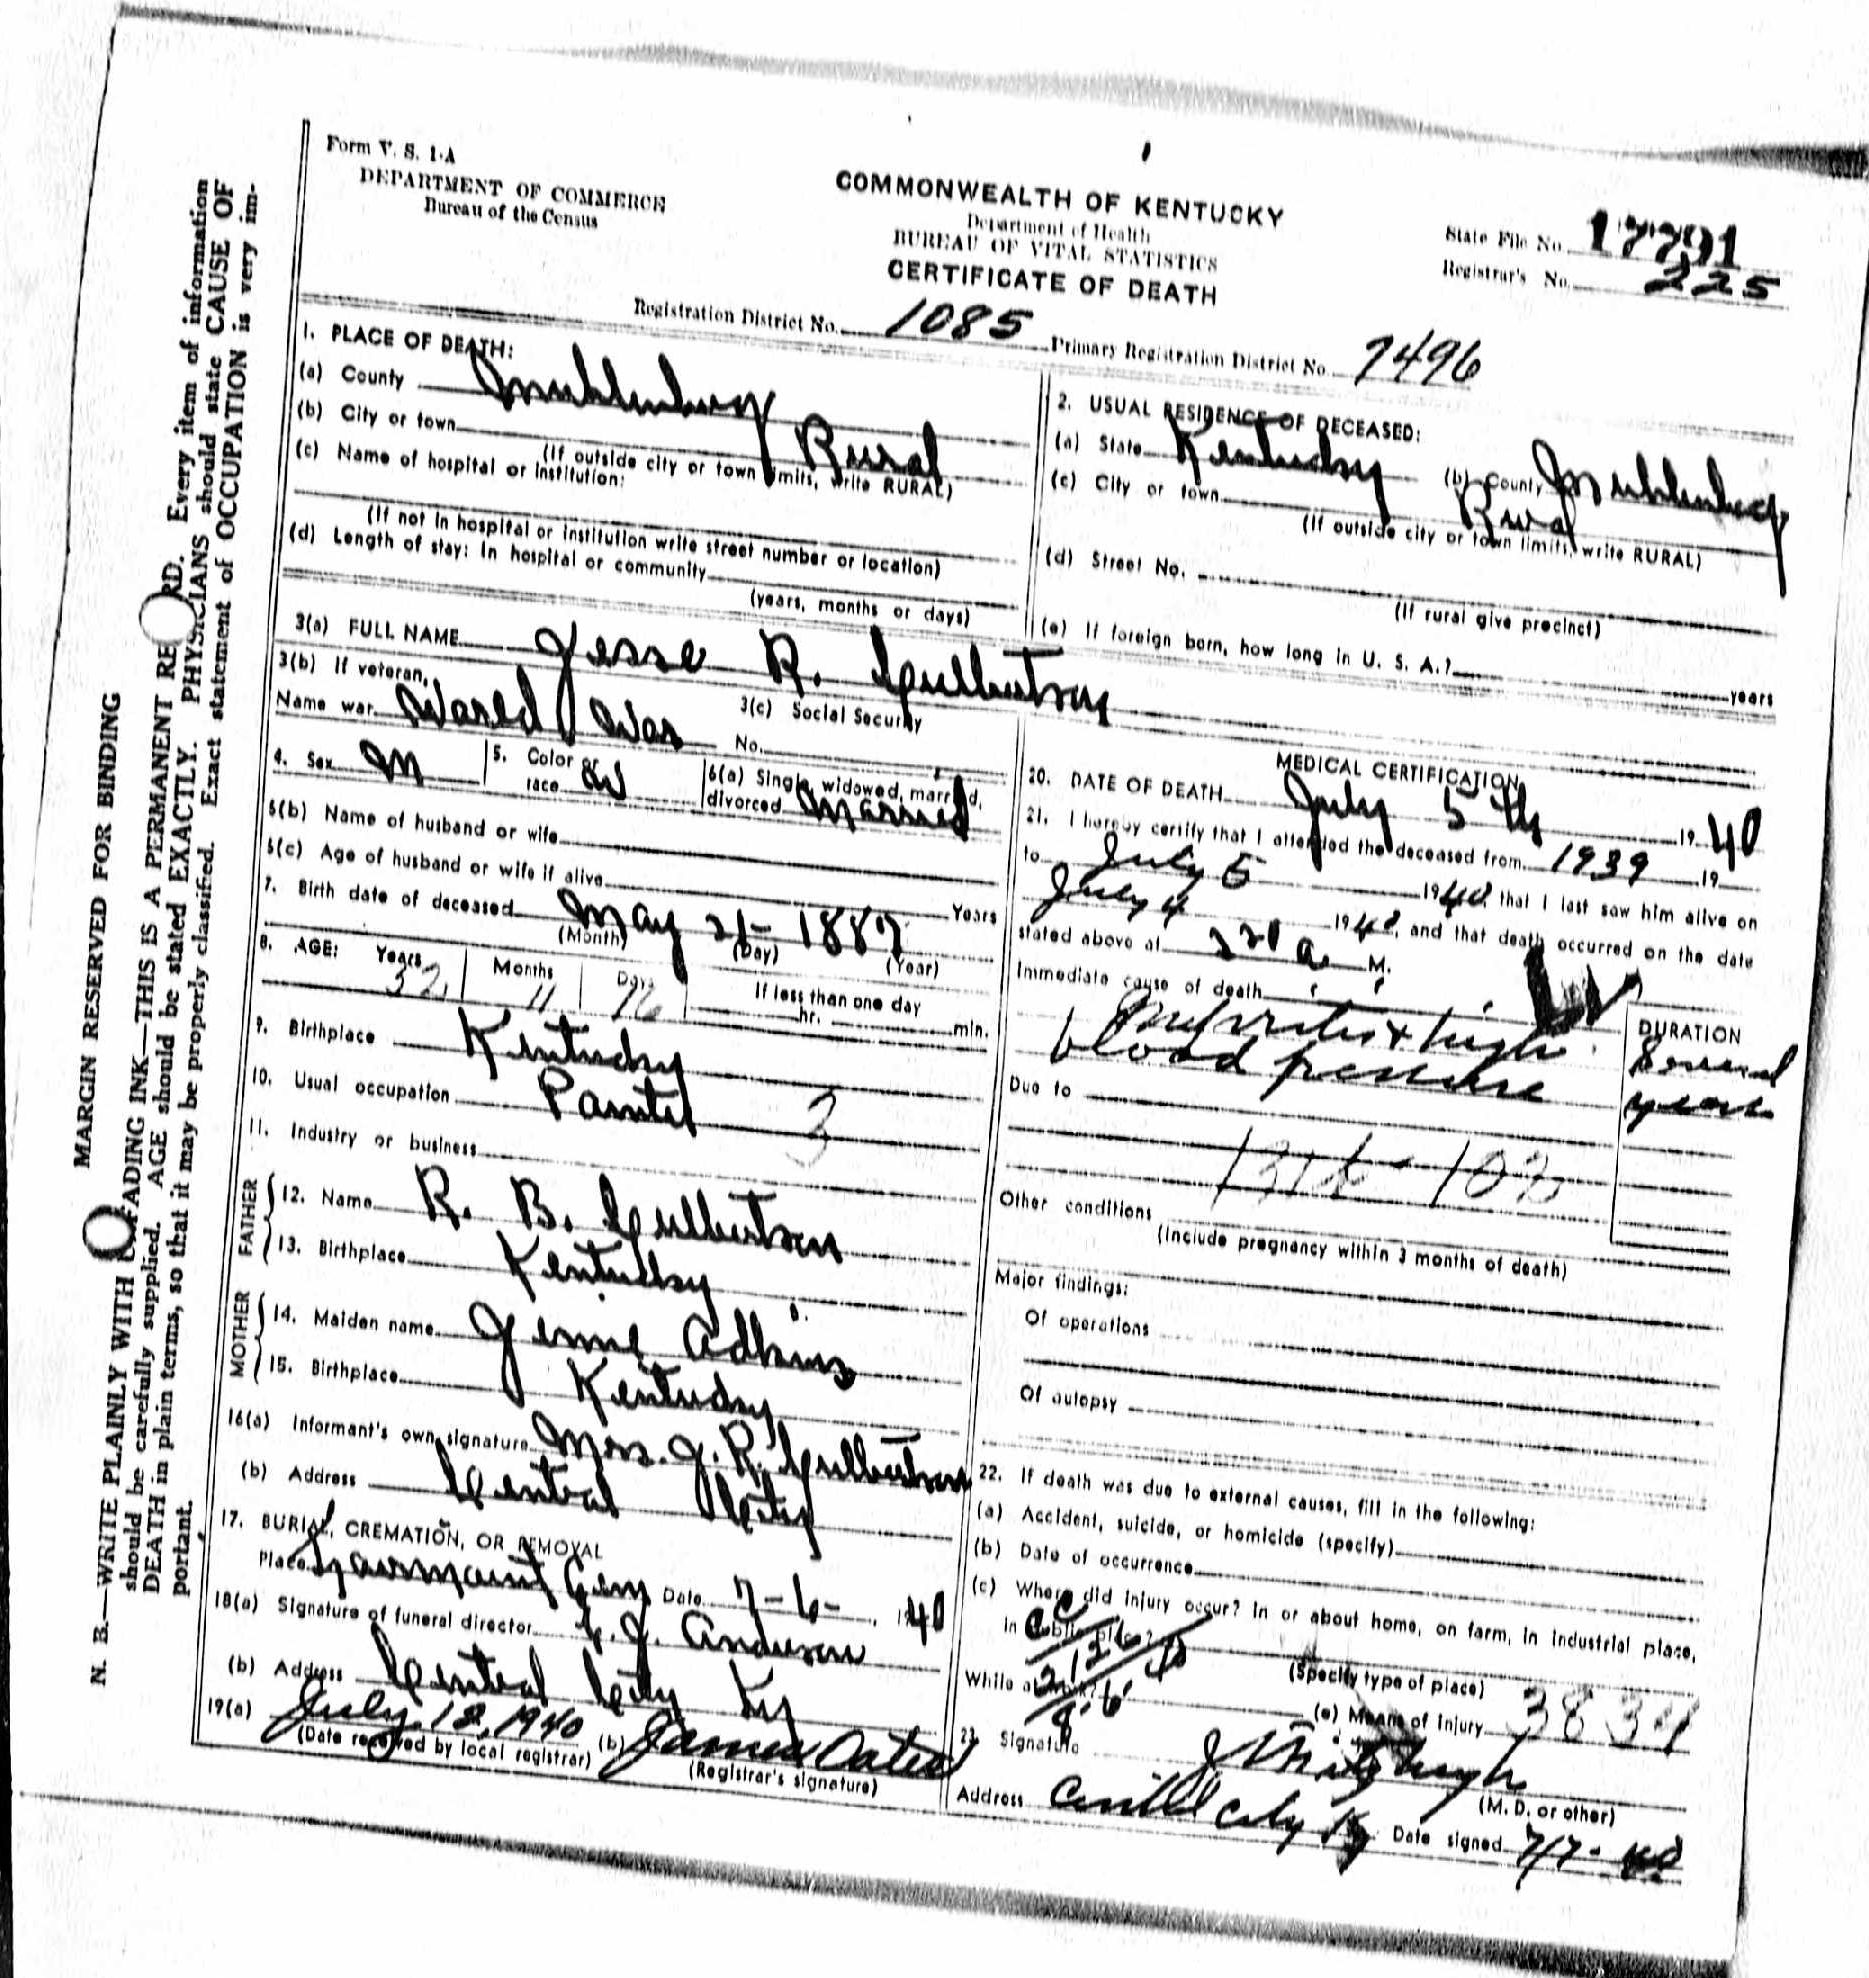 Form V. S. 1-A
DEPARTMENT OF COMMERCE
Bureau of the Census
COMMONWEALTH OF KENTUCKY
Department of Health
BUREAU OF VITAL STATISTICS
CERTIFICATE OF DEATH
State File No. 17791
Registrar's No. 225
Registration District No. 1085 Primary Registration District No. 7496
1. PLACE OF DEATH:
(a) County Muhlenberg
(b) City or town Rural
(If outside city or town limits, write RURAL)
(c) Name of hospital or institution:
(If not in hospital or institution write street number or location)
(d) Length of stay: In hospital or community
(years, months or days)
2. USUAL RESIDENCE OF DECEASED:
(a) State Kentucky (b) County Muhlenberg
(c) City or town Rural
(If outside city or town limits, write RURAL)
(d) Street No.
(If rural give precinct)
(e) If foreign born, how long in U. S. A.? years
3(a) FULL NAME Jesse R. Culbertson
3(b) If veteran,
Name war World War
3(c) Social Security
No.
4. Sex M 5. Color or race W 6(a) Single, widowed, married, divorced Married
6(b) Name of husband or wife
6(c) Age of husband or wife if alive Years
7. Birth date of deceased May 21- 1887
(Month) (Day) (Year)
8. AGE: Years Months Days If less than one day
52 11 16 hr. min.
9. Birthplace Kentucky
10. Usual occupation Painter 3
11. Industry or business
FATHER
12. Name R. B. Culbertson
13. Birthplace Kentucky
MOTHER
14. Maiden name Jennie Adkins
15. Birthplace Kentucky
16(a) Informant's own signature Mrs. J. R. Culbertson
(b) Address Central City
17. BURIAL, CREMATION, OR REMOVAL
Place Fairmount Cem Date 7-6-, 1940
18(a) Signature of funeral director Anderson
(b) Address Central City Ky
19(a) July 12, 1940 (b) James Oates
(Date received by local registrar) (Registrar's signature)
MEDICAL CERTIFICATION
20. DATE OF DEATH July 5th 1940
21. I hereby certify that I attended the deceased from 1939 19
to July 5 1940, that I last saw him alive on
July 4 1940, and that death occurred on the date
stated above at a. M.
Immediate cause of death
Nephritis & high
blood pressure
DURATION
Several
years
Due to
Other conditions
(Include pregnancy within 3 months of death)
Major findings:
Of operations
Of autopsy
22. If death was due to external causes, fill in the following:
(a) Accident, suicide, or homicide (specify)
(b) Date of occurrence
(c) Where did injury occur? In or about home, on farm, in industrial place,
in public place?
(Specify type of place)
While at (e) Means of injury
3834
23. Signature
(M. D. or other)
Address Central City Ky Date signed 7/7-40
MARGIN RESERVED FOR BINDING
N. B.—WRITE PLAINLY WITH UNFADING INK—THIS IS A PERMANENT RECORD. Every item of information
should be carefully supplied. AGE should be stated EXACTLY. PHYSICIANS should state CAUSE OF
DEATH in plain terms, so that it may be properly classified. Exact statement of OCCUPATION is very im-
portant.